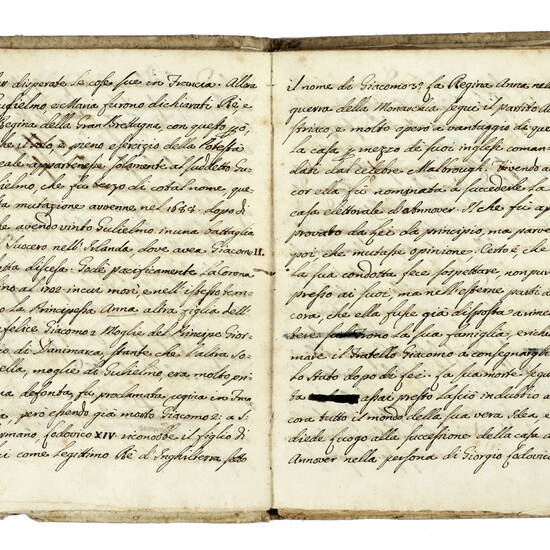 disperate le cose sue in Francia. Allora
Guglielmo e Maria furono dichiarati Re, e
Regina della Gran Brettagna, con questo però,
che il vero, e pieno esercizio della Potestà
reale appartenesse solamente al suddetto Gu-
glielmo, che fu terzo di cotal nome, que-
sta mutazione avvenne nel 1688. dopo di
che avendo vinto Guglielmo in una battaglia
il Suocero nell'Irlanda dove avea Giacomo II.
fatta discesa. Godè pacificamente la Corona
sino al 1702 in cui morì, e nell'istesso tem-
po la Principessa Anna altra figlia dell'
infelice Giacomo 2. Moglie del Principe Gior-
gio di Danimarca, stante che l'altra So-
rella, moglie di Guglielmo, era molto pri-
ma defonta, fu proclamata regina in Ing
, però essendo già morto Giacomo 2. a S.
Germano Lodovico XIV riconobbe il figlio di
lui come legittimo Re d'Inghilterra sotto
il nome di Giacomo 3.° La Regina Anna nella
guerra della Monarchia seguì il partito
e molto operò a vantaggio di que
la casa p mezzo de suoi inglesi coman-
dati dal celebre Malborough. Avendo
cor ella fu nominata a succedere la
casa elettorale d'Annover. Il che fu ap
provato da fei da principio, ma parve
poi, che mutasse opinione. Certo è che
la sua condotta fece sospettare, non pur
presso ai suoi, ma nell'esterne parti a
cora, che ella fusse già disposta a rime
la sua famiglia, e richia
mare il Fratello Giacomo a consegnar
lo Stato dopo di fei. La sua morte segui
ta assai presto lasciò in dubbio a
cora tutto il mondo della sua vera Idea
diede luogo alla successione della casa d
Annover nella persona di Giorgio Lodovico